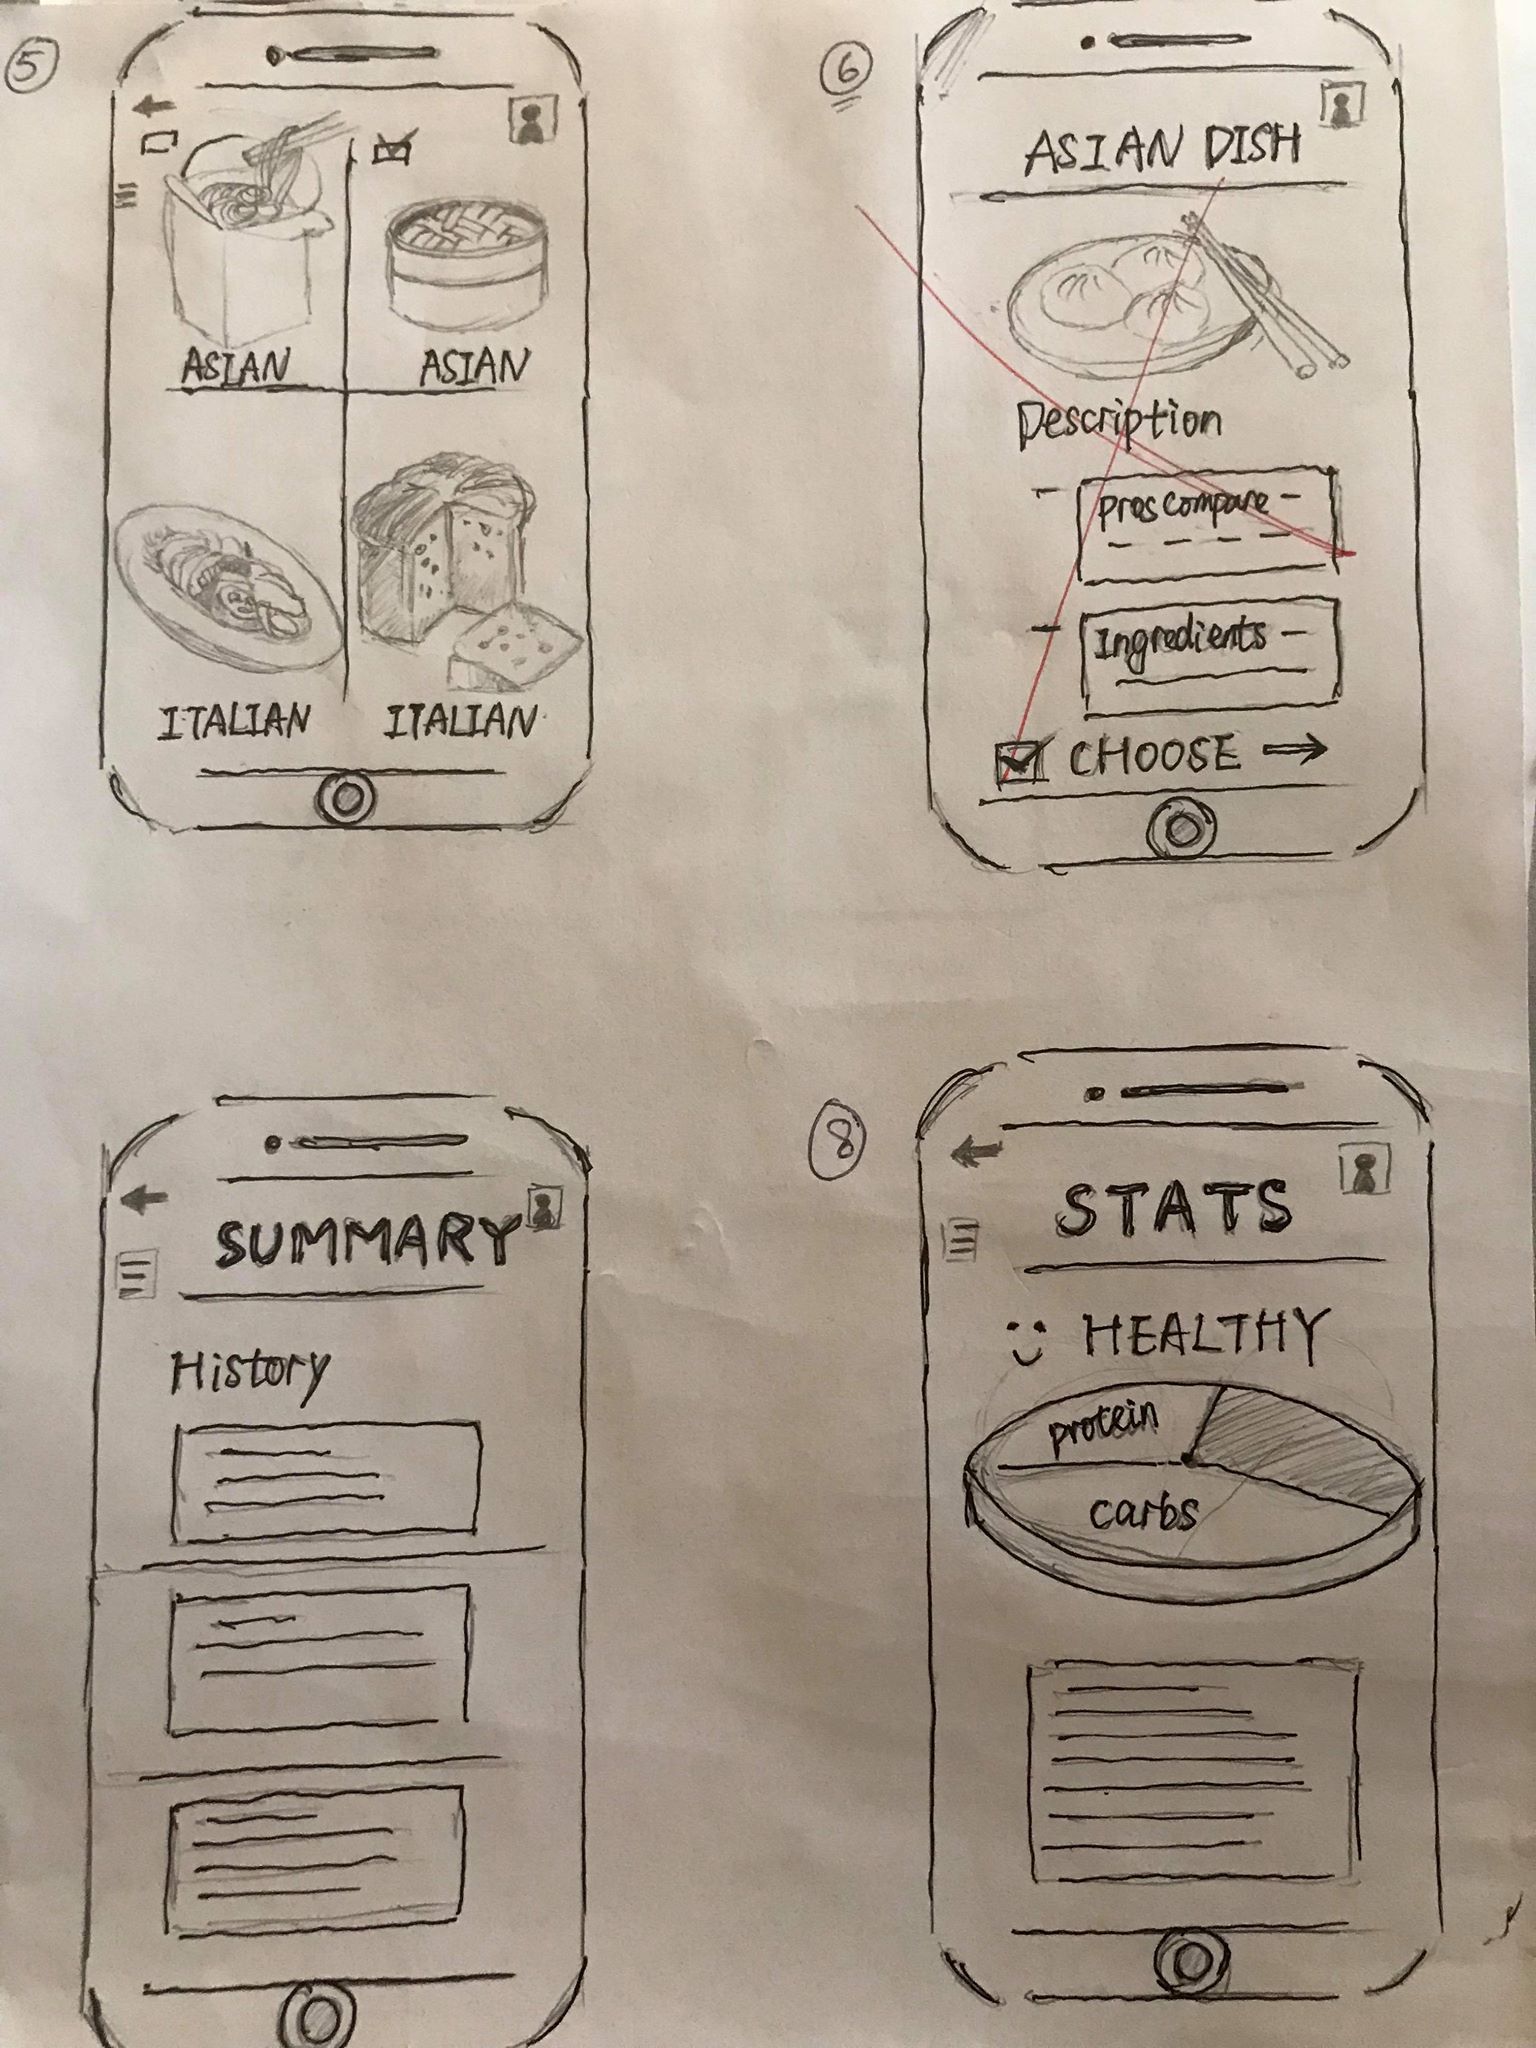 5
ASIAN
ASIAN
ITALIAN
ITALIAN
6
ASIAN DISH
Description
Pros compare
Ingredients
CHOOSE →
SUMMARY
History
8
STATS
HEALTHY
protein
carbs